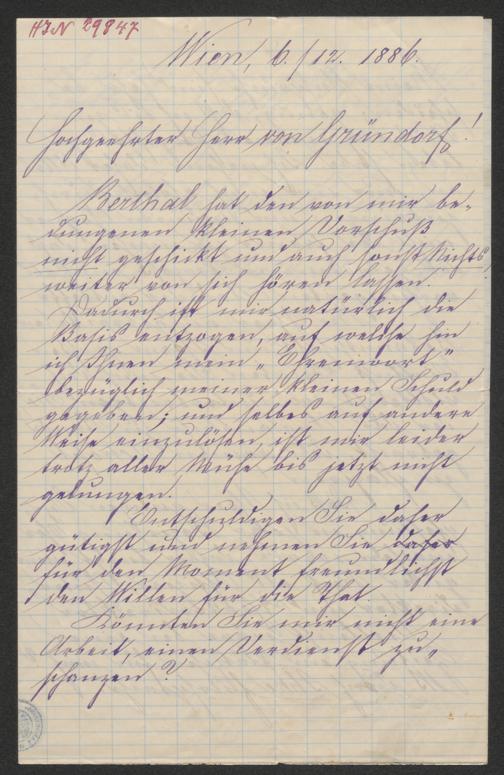 HIN 29847
Wien, 6./12. 1886.
Hochgeehrter Herr von Gründorf!
Berthal hat den von mir be-
dungenen kleinen Vorschuß
nicht geschickt und auch sonst Nichts
weiter von sich hören lassen.
Dadurch ist mir natürlich die
Basis entzogen, auf welche hin
ich Ihnen mein „Ehrenwort"
bezüglich meiner kleinen Schuld
gegeben; und selbes auf andere
Weise einzulösen, ist mir leider
trotz aller Mühe bis jetzt nicht
gelungen.
Entschuldigen Sie daher
gütigst und nehmen Sie daher
für den Moment freundlichst
den Willen für die That.
Könnten Sie mir nicht eine
Arbeit, einen Verdienst zu-
schanzen?